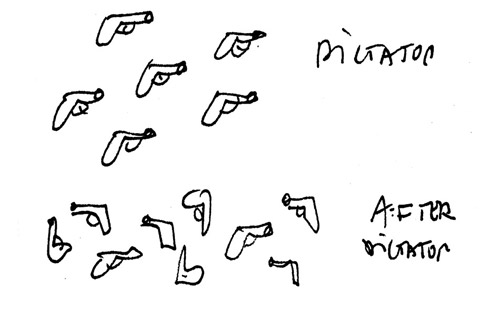 DICTATOR
AFTER
DICTATOR